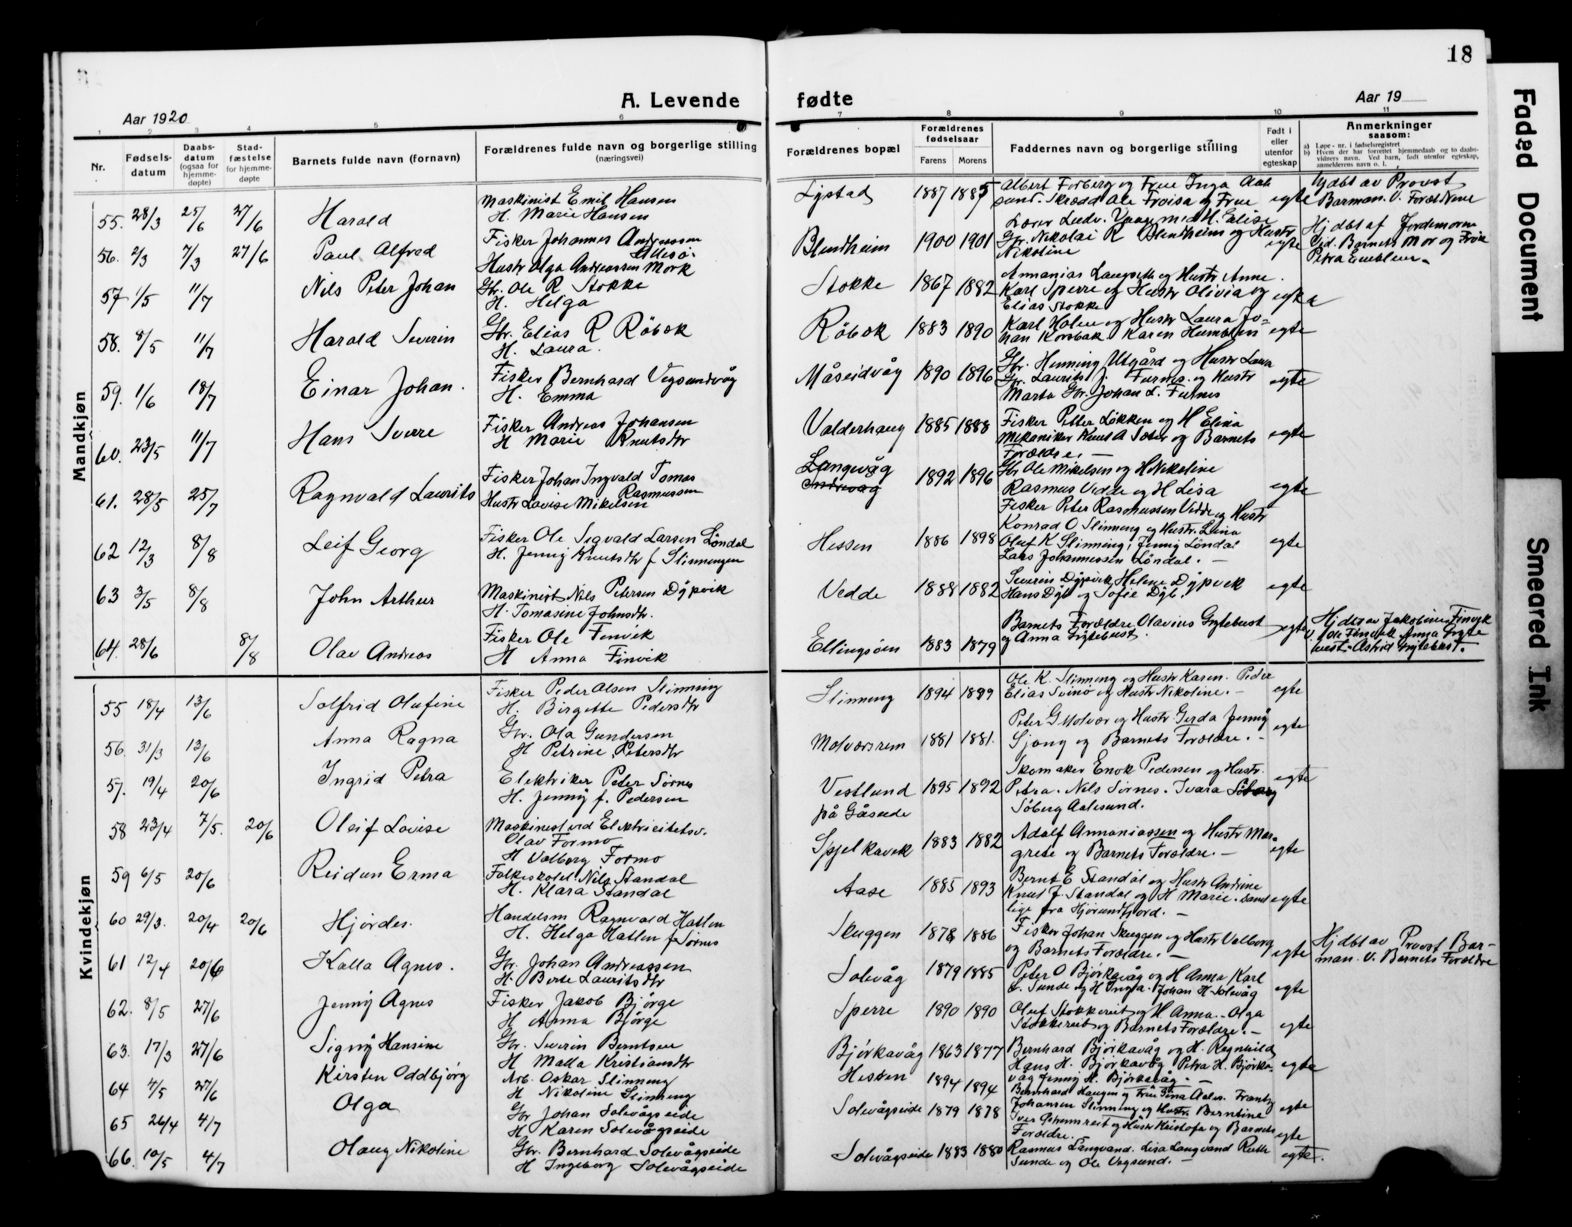 18
Aar 1920
A. Levende fødte
Aar 19
1 2 3 4 5 6 7 8 9 10 11
Nr. Fødsels-datum Daabs-datum (ogsaa for hjemme-døpte) Stad-fæstelse for hjemme-døpte Barnets fulde navn (fornavn) Forældrenes fulde navn og borgerlige stilling (næringsvei) Forældrenes bopæl Forældrenes fødselsaar Farens Morens Faddernes navn og borgerlige stilling Født i eller utenfor egteskap Anmerkninger saasom:
a) Løpe-nr. i fødselsregistret
b) Hvem der har forrettet hjemmedaab og to daabs-vidners navn. Ved barn, født utenfor egteskap, anmelderens navn o. l.
Mandkjøn
55. 28/3 25/6 27/6 Harald Maskinist Emil Hansen H. Marie Hansen Lystad 1887 1885 Albert Forberg og Frue Inga Aalesund. Skrædd. Ole Froisa og Frue egte Hjdbt av Provst Barman. V. Foræl
56. 2/3 7/3 27/6 Paul Alfred Fisker Johannes Andreassen Hustr Olga Andreassen Mork Blindheim 1900 1901 Gbr. Nikolai R Blindheim og Hustr Nikoline egte Hjdbt af Jordemoren Barnets Mor og Petra Emblem.
57 1/5 11/7 Nils Peter Johan Gbr. Ole R Stokke H. Helga Stokke 1867 1882 Annanias Langseth og Hustr Anne. Karl Sperre og Hustr Olivia og Elias Stokke egte
58. 8/5 11/7 Harald Severin Gbr. Elias R Røbek H. Laura. Røbek 1883 1890 Karl Holen og Hustr Laura Johan Korsbak Karen Humblen egte
59. 1/6 18/7 Einar Johan. Fisker Bernhard Vegsundvåg H. Emma Måseidvåg 1890 1896 Gbr. Henning Utgård og Hustr Laura Gbr. Laurits J. Furnes og Hustr Marta Gbr. Johan L. Furnes egte
60. 23/5 11/7 Hans Sverre Fisker Andreas Johansen H Marie Knutsdtr Valderhaug 1885 1888 Fisker Petter Løkken og H Elina Mekaniker Knut A Sæter og Barnets Forældre. — egte
61. 28/5 25/7 Ragnvald Laurits Fisker Johan Ingvald Tomas Rasmussen Hustr Lovise Mikelsen Langevåg 1892 1896 Gbr Ole Mikelsen og H Nikoline Rasmus Vedde og H Lisa Fisker Peter Rasmussen Vedde og Hustr egte
62 12/3 8/8 Leif Georg Fisker Ole Sigvald Larsen Løndal H. Jenny Knutsdtr f Slinningen Hessen 1886 1898 Konrad O Slinning og Hustr Lina Oluf K Slinning, Jenny Løndal Lars Johannessen Løndal. — egte
63 3/5 8/8 John Arthur Maskinist Nils Petersen Dypvik H. Tomasine Johnsdtr. Vedde 1888 1882 Severin Dypvik Helene Dypvik Hans Dyb og Sofie Dyb. egte
64. 28/6 8/8 Olav Andreas Fisker Ole Finvik H Anna Finvik Ellingsøen 1883 1879 Barnets Forældre Olavius Grytebust og Anna Grytebust. egte Hjdbt av Jakobine Finvik V. Ole Finvik Anna Grytebust. Astrid Grytebust.
Kvindekjøn
55 18/4 13/6 Solfrid Olufine Fisker Peder Olsen Slinning H. Birgitte Pedersdtr Slinning 1894 1899 Ole K. Slinning og Hustr Karen. Peder Elias Svinø og Hustr Nikoline. — egte
56. 31/3 13/6 Anna Ragna Gbr. Ola Gundersen H Petrine Petersdtr Molværsrem 1881 1881. Peter G Molvær og Hustr Gerda Jenny Sjong og Barnets Forældre. — egte
57. 19/4 20/6 Ingrid Petra Elektriker Peter Sørnes H. Jenny f. Pedersen Vestlund på Gåseide 1895 1892 Skomaker Enok Pedersen og Hustr. Petra. Nils Sørnes. Ivara Søberg Aalesund. egte
58 23/4 7/5. 20/6 Oleif Lovise Maskinist ved Elektricitetsv. Olav Formo H Valborg Formo Spjelkavik 1883 1882 Adolf Annaniassen og Hustr Margrete og Barnets Forældre. — egte
59 6/5 20/6 Reidun Erma Folkeskolel Nils Standal H. Klara Standal Aase 1885 1893 Bernt E Standal og Hustr Andrine Knut J Standal og H Marie. samtlige fra Hjørundfjord. — egte
60 29/3. 20/4 20/6 Hjørdis. Handelsm Ragnvald Hatlen H. Helga Hatlen f Sørnes Skuggen 1878 1886 Fisker Johan Skuggen og Hustr Valborg og Barnets Forældre. — egte Hjdbt av Provst Barman. V. Barnets Forældre
61 12/4 20/6 Kalla Agnes. Gbr. Johan Andreassen H. Berte Lauritsdtr Solevåg 1879 1885 Peter O Bjørkavåg og H Anna Karl Sunde og H Inga. Johan H Solevåg egte
62. 8/5 27/6 Jenny Agnes Fisker Jakob Bjørge H Anna Bjørge Sperre 1890 1890 Oluf Stokkereit og H Anna. Olga Stokkereit og Barnets Forældre. — egte
63. 17/3 27/6 Signy Hansine Gbr. Severin Berntsen H Malla Kristiansdtr Bjørkavåg 1863 1877 Bernhard Bjørkavåg og H. Ragnhild Hans H. Bjørkavåg Petra H. Bjørkavåg Jenny H. Bjørkavåg. — egte
64 7/5 27/6 Kirsten Oddbjørg Arb. Oskar Slinning H Nikoline Slinning Hessen 1894 1894 Bernhard Haugen og Frue Aales. Frantz Johansen Slinning og Hustr Berntine egte
65 26/4 4/7 Olga Gbr Johan Solevågseide H Karen Solevågseide Solevågseide 1879 1878 Iver og Hustr Kristofa og Barnets Forældre. egte
66. 10/5 4/7 Olaug Nikoline Gbr. Bernhard Solevågseide H Ingeborg Solevågseide Solevågseide 1883 1880 Rasmus Langvand. Lisa Langvand Ruth Sunde og Ole Vegsund. — egte.
Faded Document
Smeared Ink